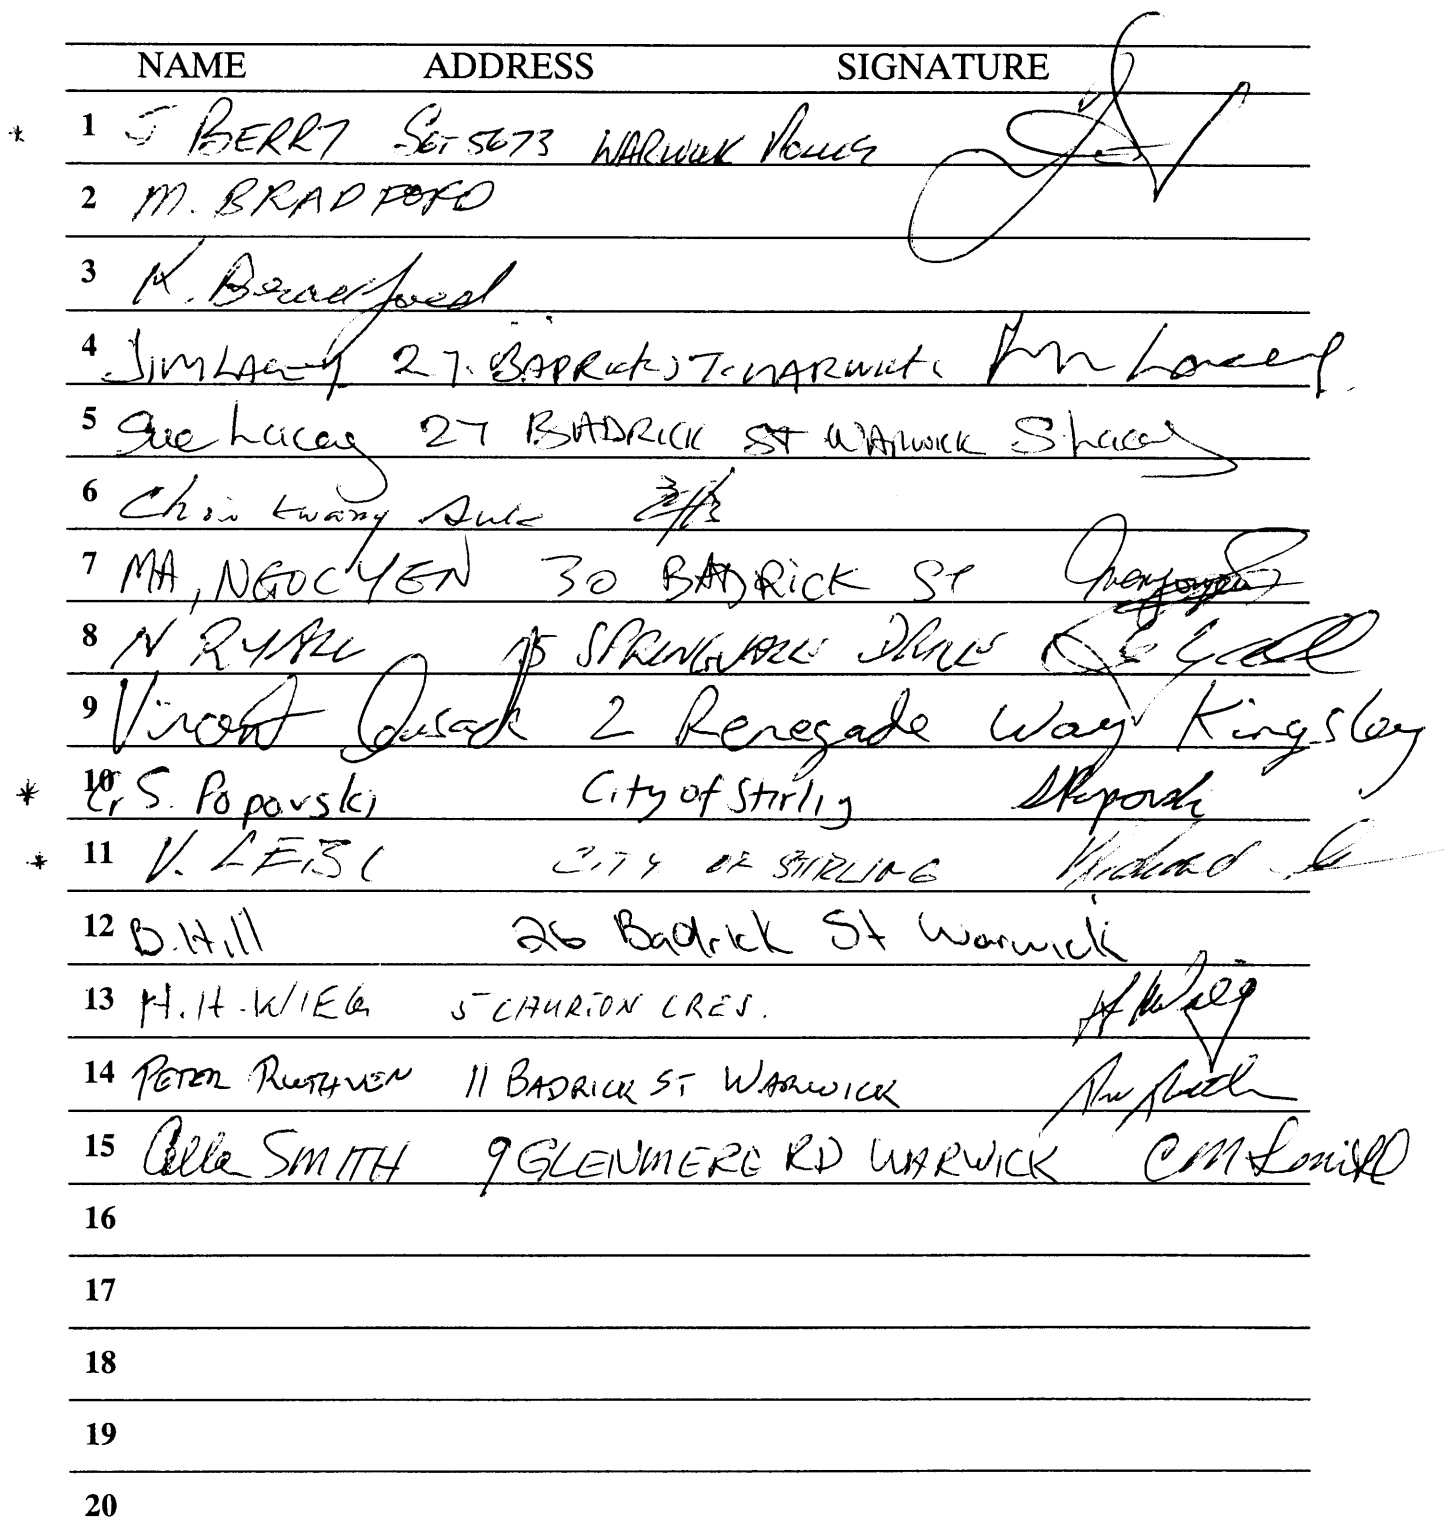 NAME ADDRESS SIGNATURE
* 1 J BERRY SGT 5673 WARWICK POLICE
2 M. BRADFORD
3 K. Bradford
4 JIM LACEY 27 BADRICK ST WARWICK
5 Sue Lacey 27 BADRICK ST WARWICK S Lacey
6 Kwang
7 MA, NGOC YEN 30 BADRICK ST
8 N RYALL 15 SPRINGVALE DRIVE
9 Vincent Cusack 2 Renegade Way Kingsley
* 10 Cr S. Popovski City of Stirlig SPopovski
* 11 V. CITY OF STIRLING
12 B. Hill 26 Badrick St Warwick
13 H. H. WIEG 5 CRES.
14 PETER RUTHVEN 11 BADRICK ST WARWICK
15 SMITH 9 GLENMERE RD WARWICK CM Smith
16
17
18
19
20